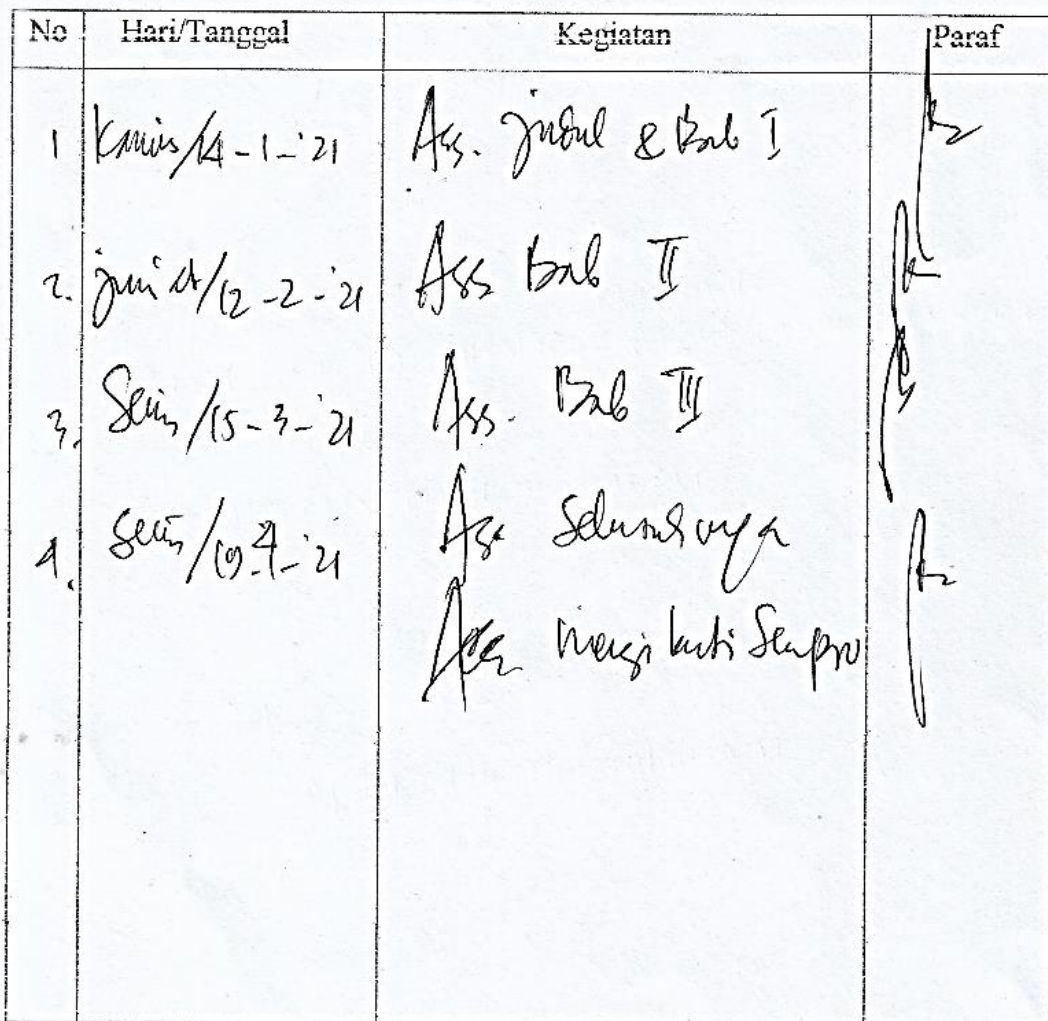 No Hari/Tanggal Kegiatan Paraf
1 Kamis/14-1-'21 Ass. judul & Bab I
2. jum'at/12-2-'21 Ass Bab II
3. Senin/15-3-'21 Ass. Bab III
4. Senin/19-4-'21 Ass Seluruhnya
mengikuti Sempro